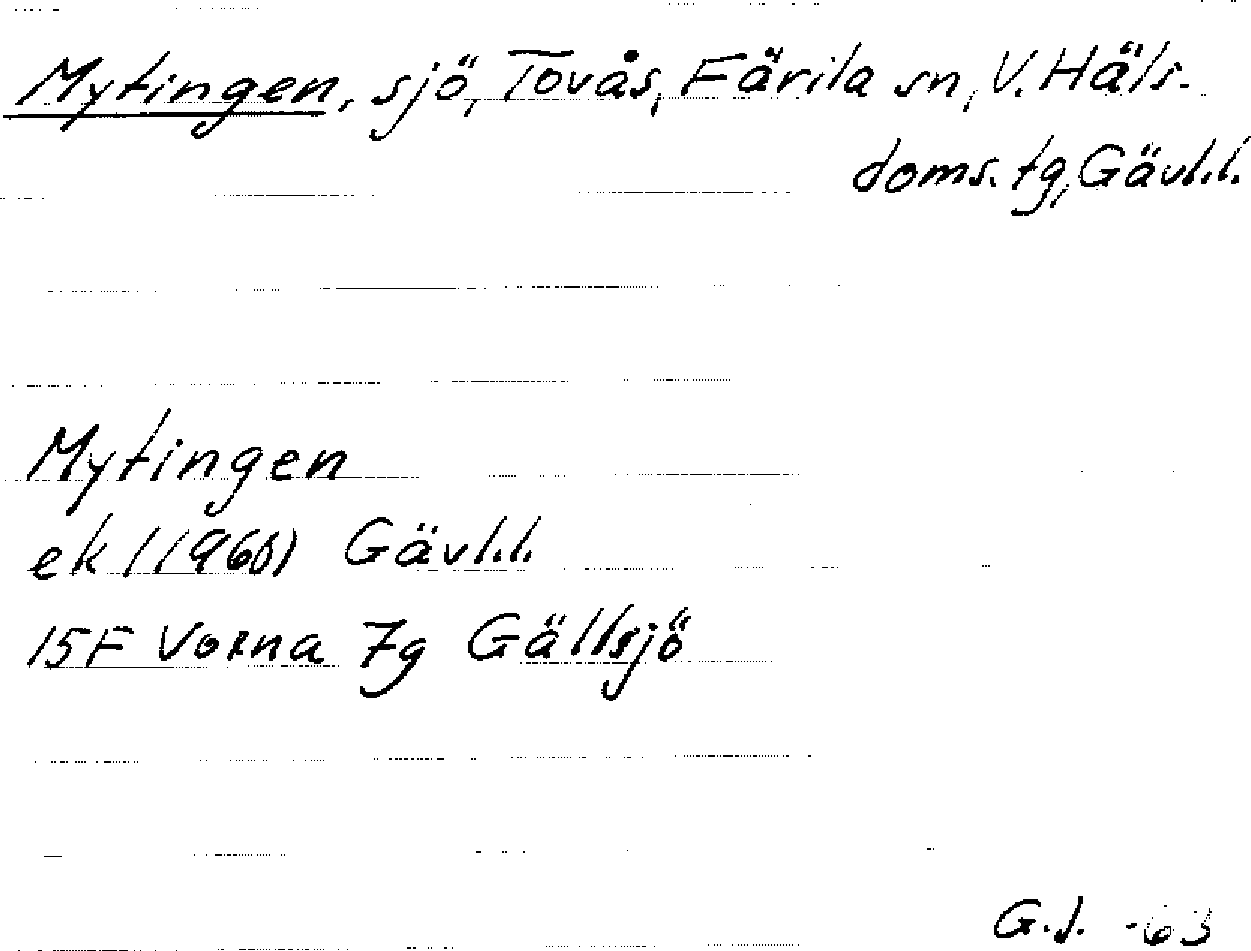 Mytingen, sjö, Tovås, Färila sn, V. Häls.
doms. tg, Gävl.l.
Mytingen
ek (1960) Gävl.l.
15F Voxna 7g Gällsjö
G.J. -63